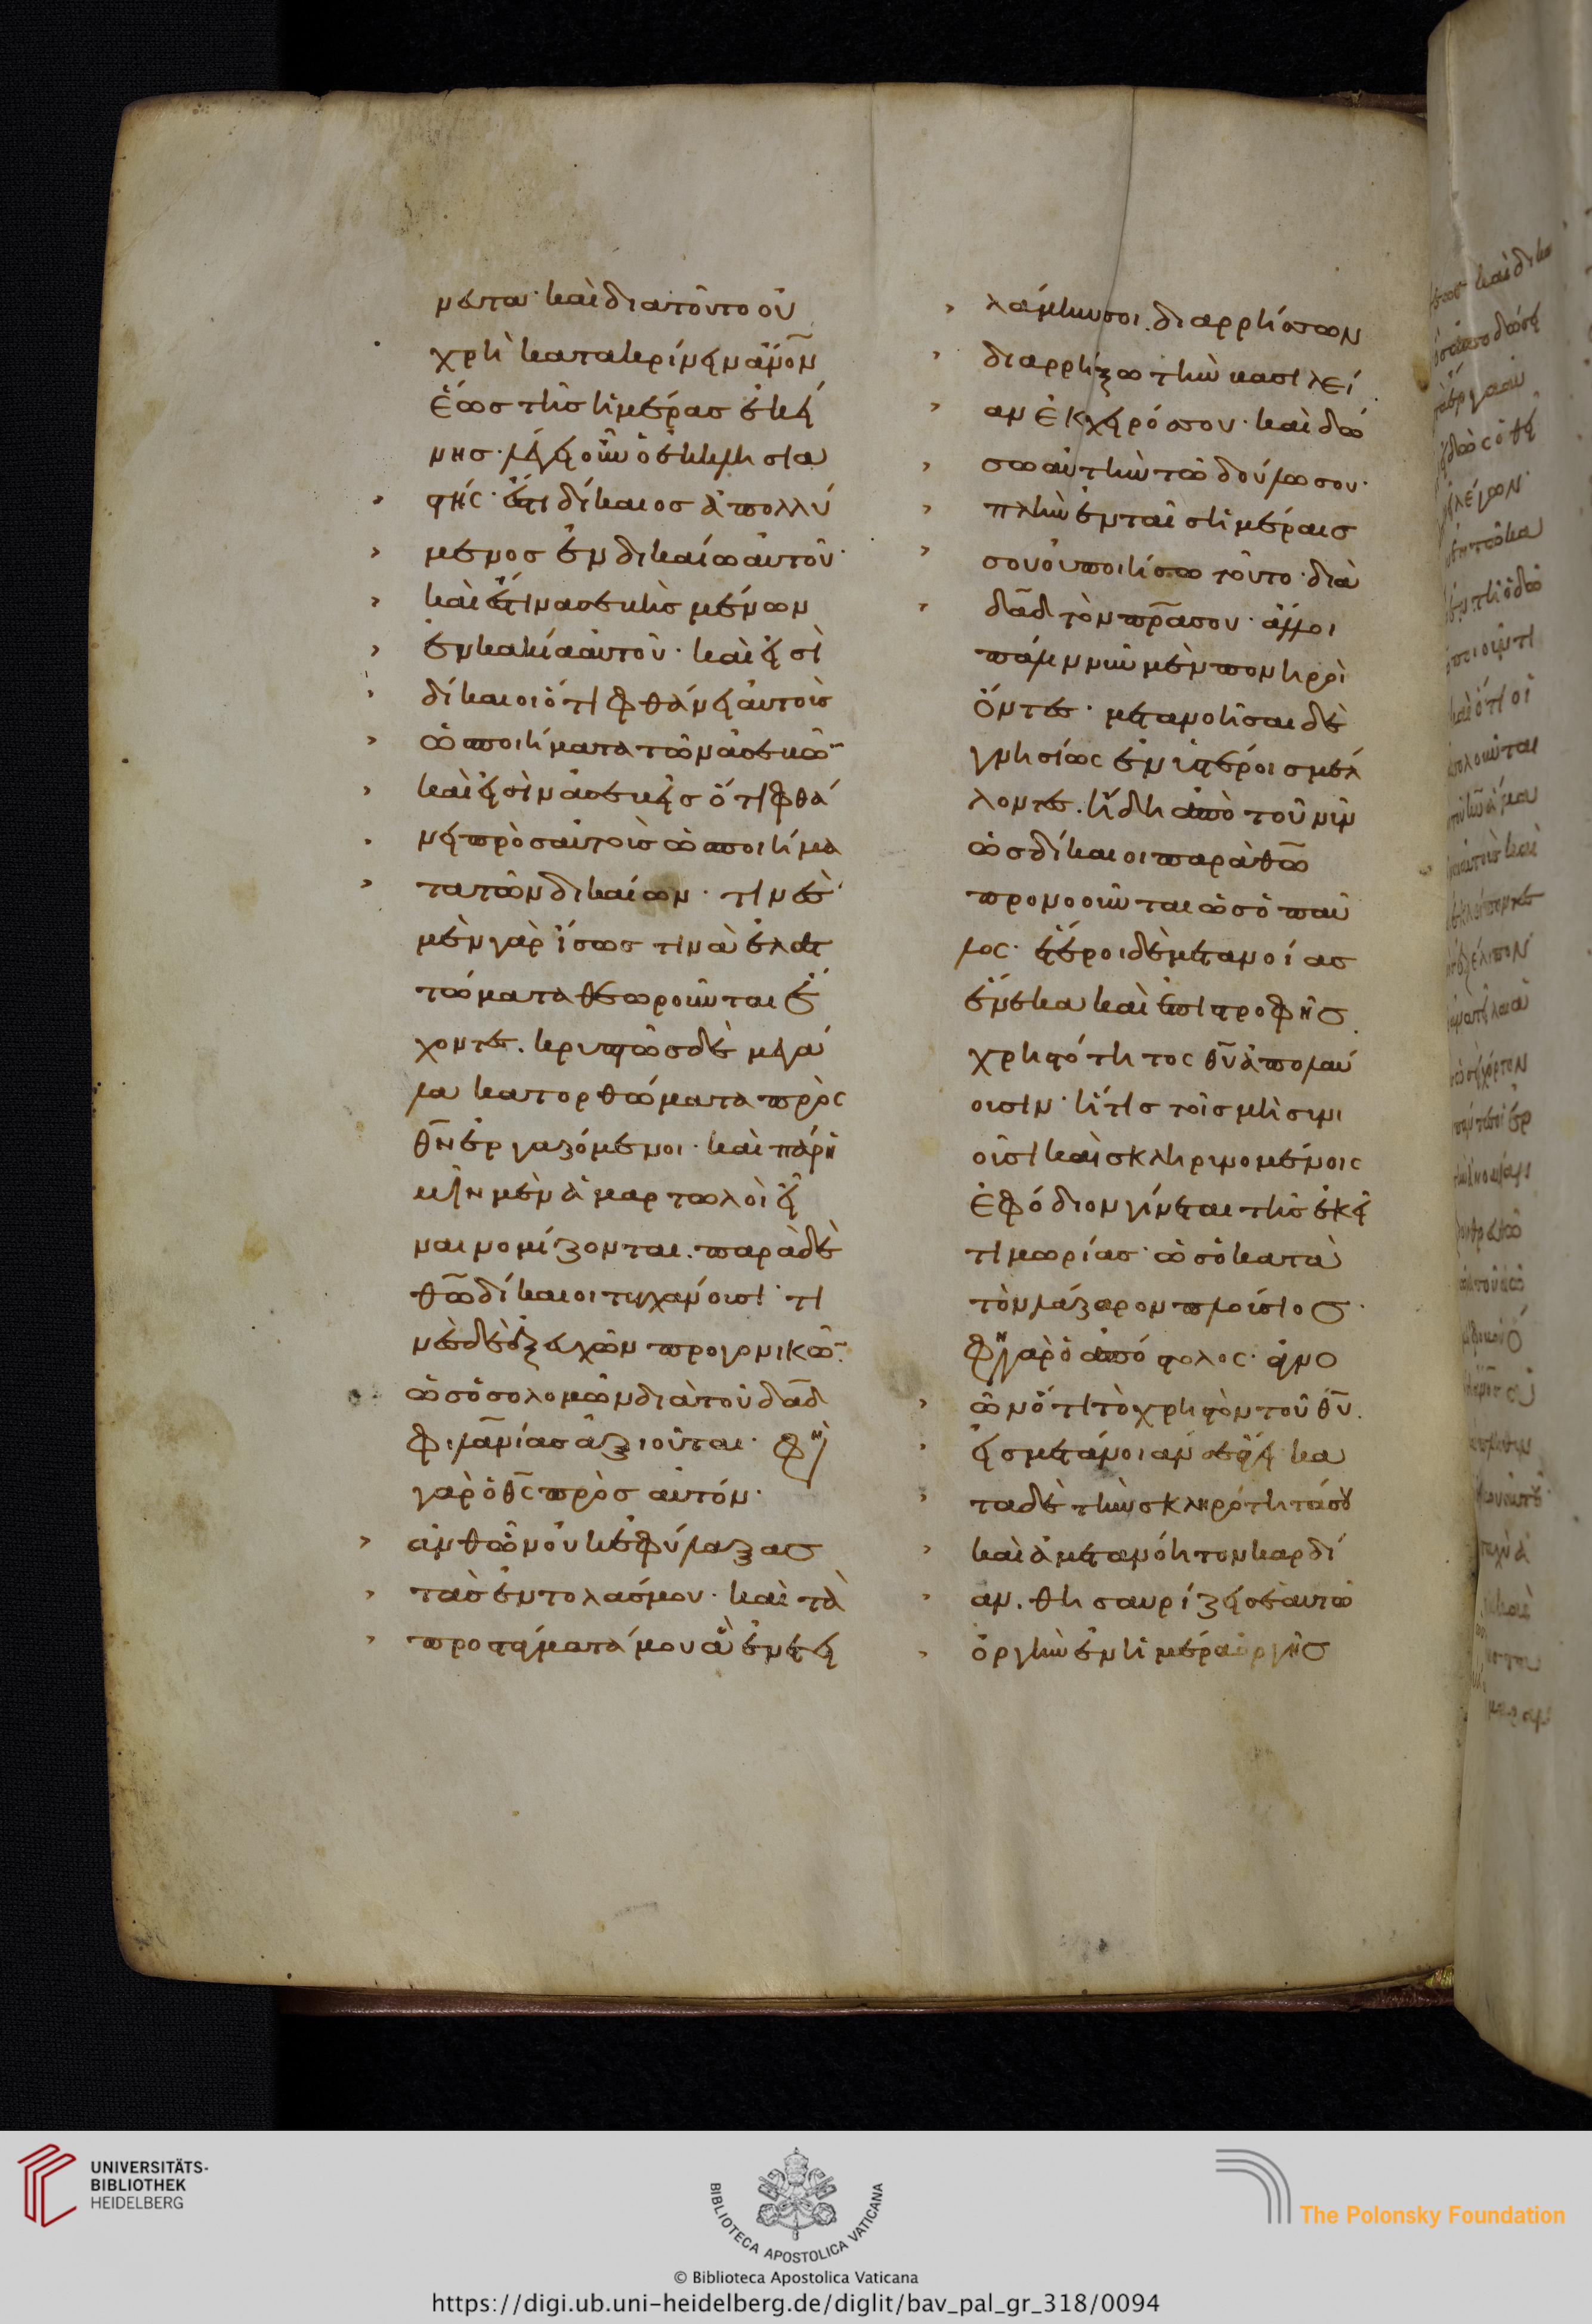 μενα· καὶ διατοῦτο οὐ
χρὴ κατακρίνειν ἄν̅ον
ἕως τῆς ἡμέρας ἐκεί
νης· λέγει οὖν ὁ ἐκκλησια
στής· ἔστι δίκαιος ἀπολλύ
μενος ἐν δικαίω αὐτοῦ·
καὶ ἔστιν ἀσεβὴς μένων
ἐν κακία αὐτοῦ· καὶ εἰσὶ
δίκαιοι ὅτι φθάνει αὐτοῖς
ὡς ποιήματα τῶν ἀσεβῶν
καὶ εἰσὶν ἀσεβεῖς ὅτι φθά
νει πρὸς αὐτοῖς ὡς ποιήμα
τα τῶν δικαίων· τινὲς
μὲν γὰρ ἴσως τινὰ ἐλατ
τώματα θεωροῦνται ἔ
χοντες. κρυπτῶς δὲ μεγά
λα κατορθώματα πρὸς
θ̅ν ἐργαζόμενοι· καὶ παρ' ἡ
μῖν μὲν ἁμαρτωλοὶ εἶ
ναι νομίζονται. παρὰ δὲ
θ̅ω δίκαιοι τυγχάνουσι· τι
νὲς δὲ ἐξ εὐχῶν προγονικῶν.
ὡς ὁ σολομῶν διὰ τοῦ δα̅δ
φιλαν̅ίας ἀξιοῦται· φη
γὰρ ὁ θ̅ς πρὸς αὐτόν·
ἀνθ' ὧν οὐκ ἐφύλαξας
τὰς ἐντολάς μου· καὶ τὰ
προστάγματά μου ἃ ἐνετει
λάμην σοι. διαρρήσσων
διαρρήξω τὴν βασιλεί
αν ἐκ χειρός σου· καὶ δώ
σω αὐτὴν τῶ δούλω σου·
πλὴν ἐν ταῖς ἡμέραις
σου οὐ ποιήσω τοῦτο· διὰ
δα̅δ τὸν πρ̅α σου· ἄλλοι
πάλιν νῦν μὲν πονηροὶ
ὄντες· μετανοῆσαι δὲ
γνησίως ἐν ὑστέροις μέλ
λοντες. ἤδη ἀπὸ τοῦ νῦν
ὡς δίκαιοι παρὰ θ̅ω
προνοοῦνται ὡς ὁ παῦ
λος· ἕτεροι δὲ μετανοίας
ἕνεκα καὶ ἐπιστροφῆς
χρηστότητος θ̅υ ἀπολαύ
ουσιν· ἥτις τοῖς μὴ συνι
οῦσι καὶ σκληρυνομένοις
ἐφόδιον γίνεται τῆς ἐκεῖ
τιμωρίας· ὡς ὁ κατὰ
τὸν λάζαρον πλούσιος·
φη γὰρ ὁ ἀπόστολος· ἀγνο
ῶν ὅτι τὸ χρηστὸν τοῦ θ̅υ.
εἰς μετάνοιάν σε ἄγει· κα
τὰ δὲ τὴν σκληρότητά σου
καὶ ἀμετανόητον καρδί
αν. θησαυρίζεις ἑαυτῶ
ὀργὴν ἐν ἡμέρα ὀργῆς
UNIVERSITÄTS-
BIBLIOTHEK
HEIDELBERG
BIBLIOTECA APOSTOLICA VATICANA
The Polonsky Foundation
© Biblioteca Apostolica Vaticana
https://digi.ub.uni-heidelberg.de/diglit/bav_pal_gr_318/0094